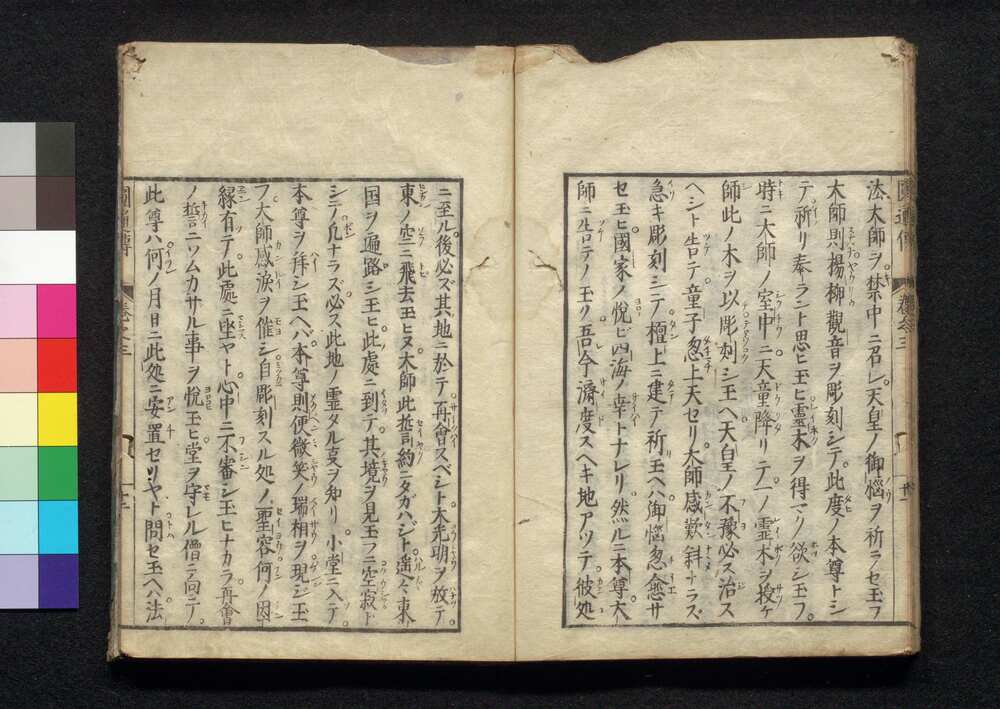 法大師ヲ禁中ニ召レ天皇ノ御惱ヲ祈ラセ玉フ
大師則揚柳觀音ヲ彫刻シテ此度ノ本尊トシ
テ祈リ奉ラント思ヒ玉ヒ霊木ヲ得マク欲シ玉フ。
時ニ大師ノ室中ニ天童降リテ一ノ霊木ヲ授ケ
師此ノ木ヲ以彫刻シ玉ヘ天皇ノ不豫必ス治ス
ヘシト告テ童子忽上天セリ大師感歎斜ナラズ
急キ彫刻シテ檀上ニ建テ祈玉ヘハ御惱忽愈サ
セ玉ヒ國家ノ悅ビ四海ノ幸トナレリ然ルニ本尊大
師ニ告テノ玉ク吾今濟度スヘキ地アツテ彼処
ニ至ル後必ズ其地ニ於テ再會スベシト大光明ヲ放テ
東ノ空ニ飛去玉ヒヌ大師此誓約ニタガハジト遥々東
国ヲ遍路シ玉ヒ此處ニ到テ其境ヲ見玉フニ空寂ト
シテ凡ナラズ必ス此地ノ霊タル支ヲ知リ小堂ニ入テ
本尊ヲ拜シ玉ヘバ本尊則便微笑ノ瑞相ヲ現ジ玉
フ大師感涙ヲ催シ自彫刻スル処ノ聖容何ノ因
縁有テ此處ニ坐ヤト心中ニ不審シ玉ヒナカラ再會
ノ誓ニソムカサル事ヲ悅玉ヒ堂ヲ守レル僧ニ向テ。
此尊ハ何ノ月日ニ此処ニ安置セリヤト問セ玉ヘハ法